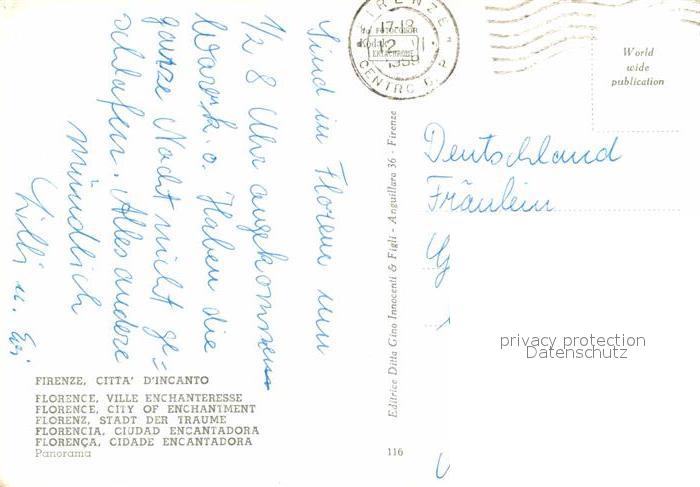 Sind in Florenz um
1/2 8 Uhr angekommen
Haben die
ganze Nacht nicht ge=
schlafen. Alles andere
mündlich
Lilli u.
FIRENZE, CITTA' D'INCANTO
FLORENCE, VILLE ENCHANTERESSE
FLORENCE, CITY OF ENCHANTMENT
FLORENZ, STADT DER TRAUME
FLORENCIA, CIUDAD ENCANTADORA
FLORENÇA, CIDADE ENCANTADORA
Panorama
Editrice Ditta Gino Innocenti & Figli - Anguillara 36 - Firenze
116
FIRENZE
17-18
Kodak
EKTACHROME
1959
CENTRO C. P.
World
wide
publication
Deutschland
Fräulein
privacy protection
Datenschutz